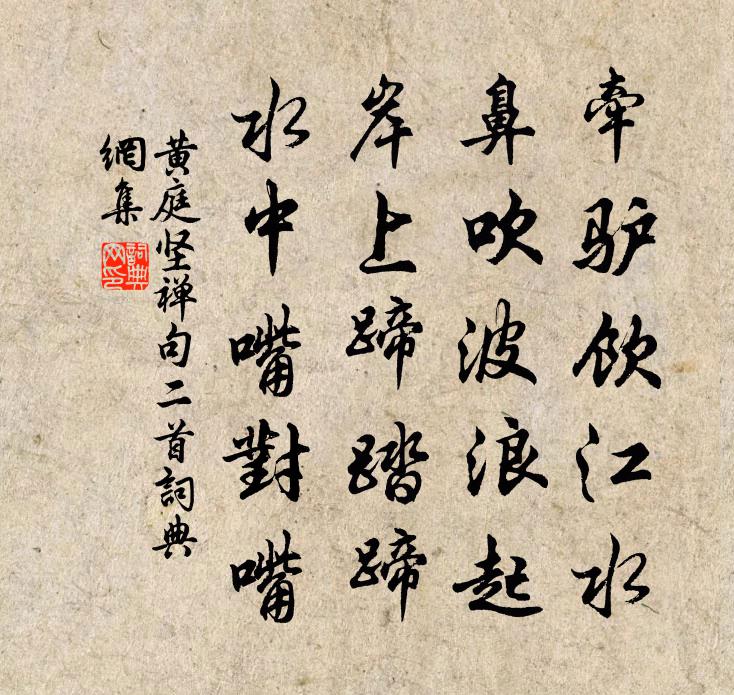 牽驴饮江水
鼻吹波浪起
岸上蹄踏蹄
水中嘴對嘴
黄庭坚禅句二首詞典
網集
詞典
网印